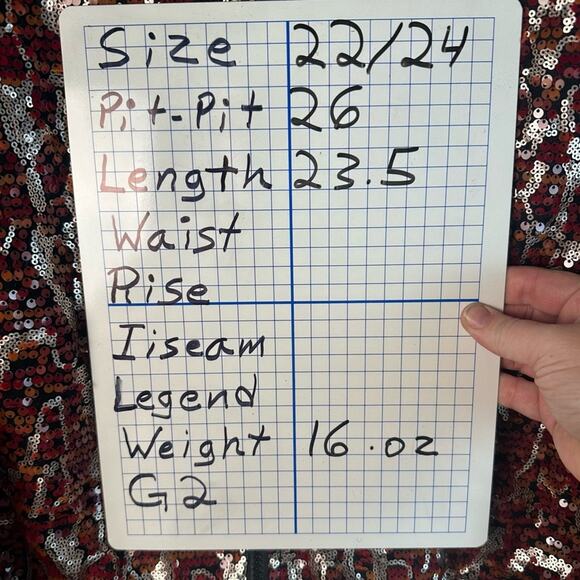 Size 22/24
Pit-Pit 26
Length 23.5
Waist
Rise
Iiseam
Legend
Weight 16.oz
G2